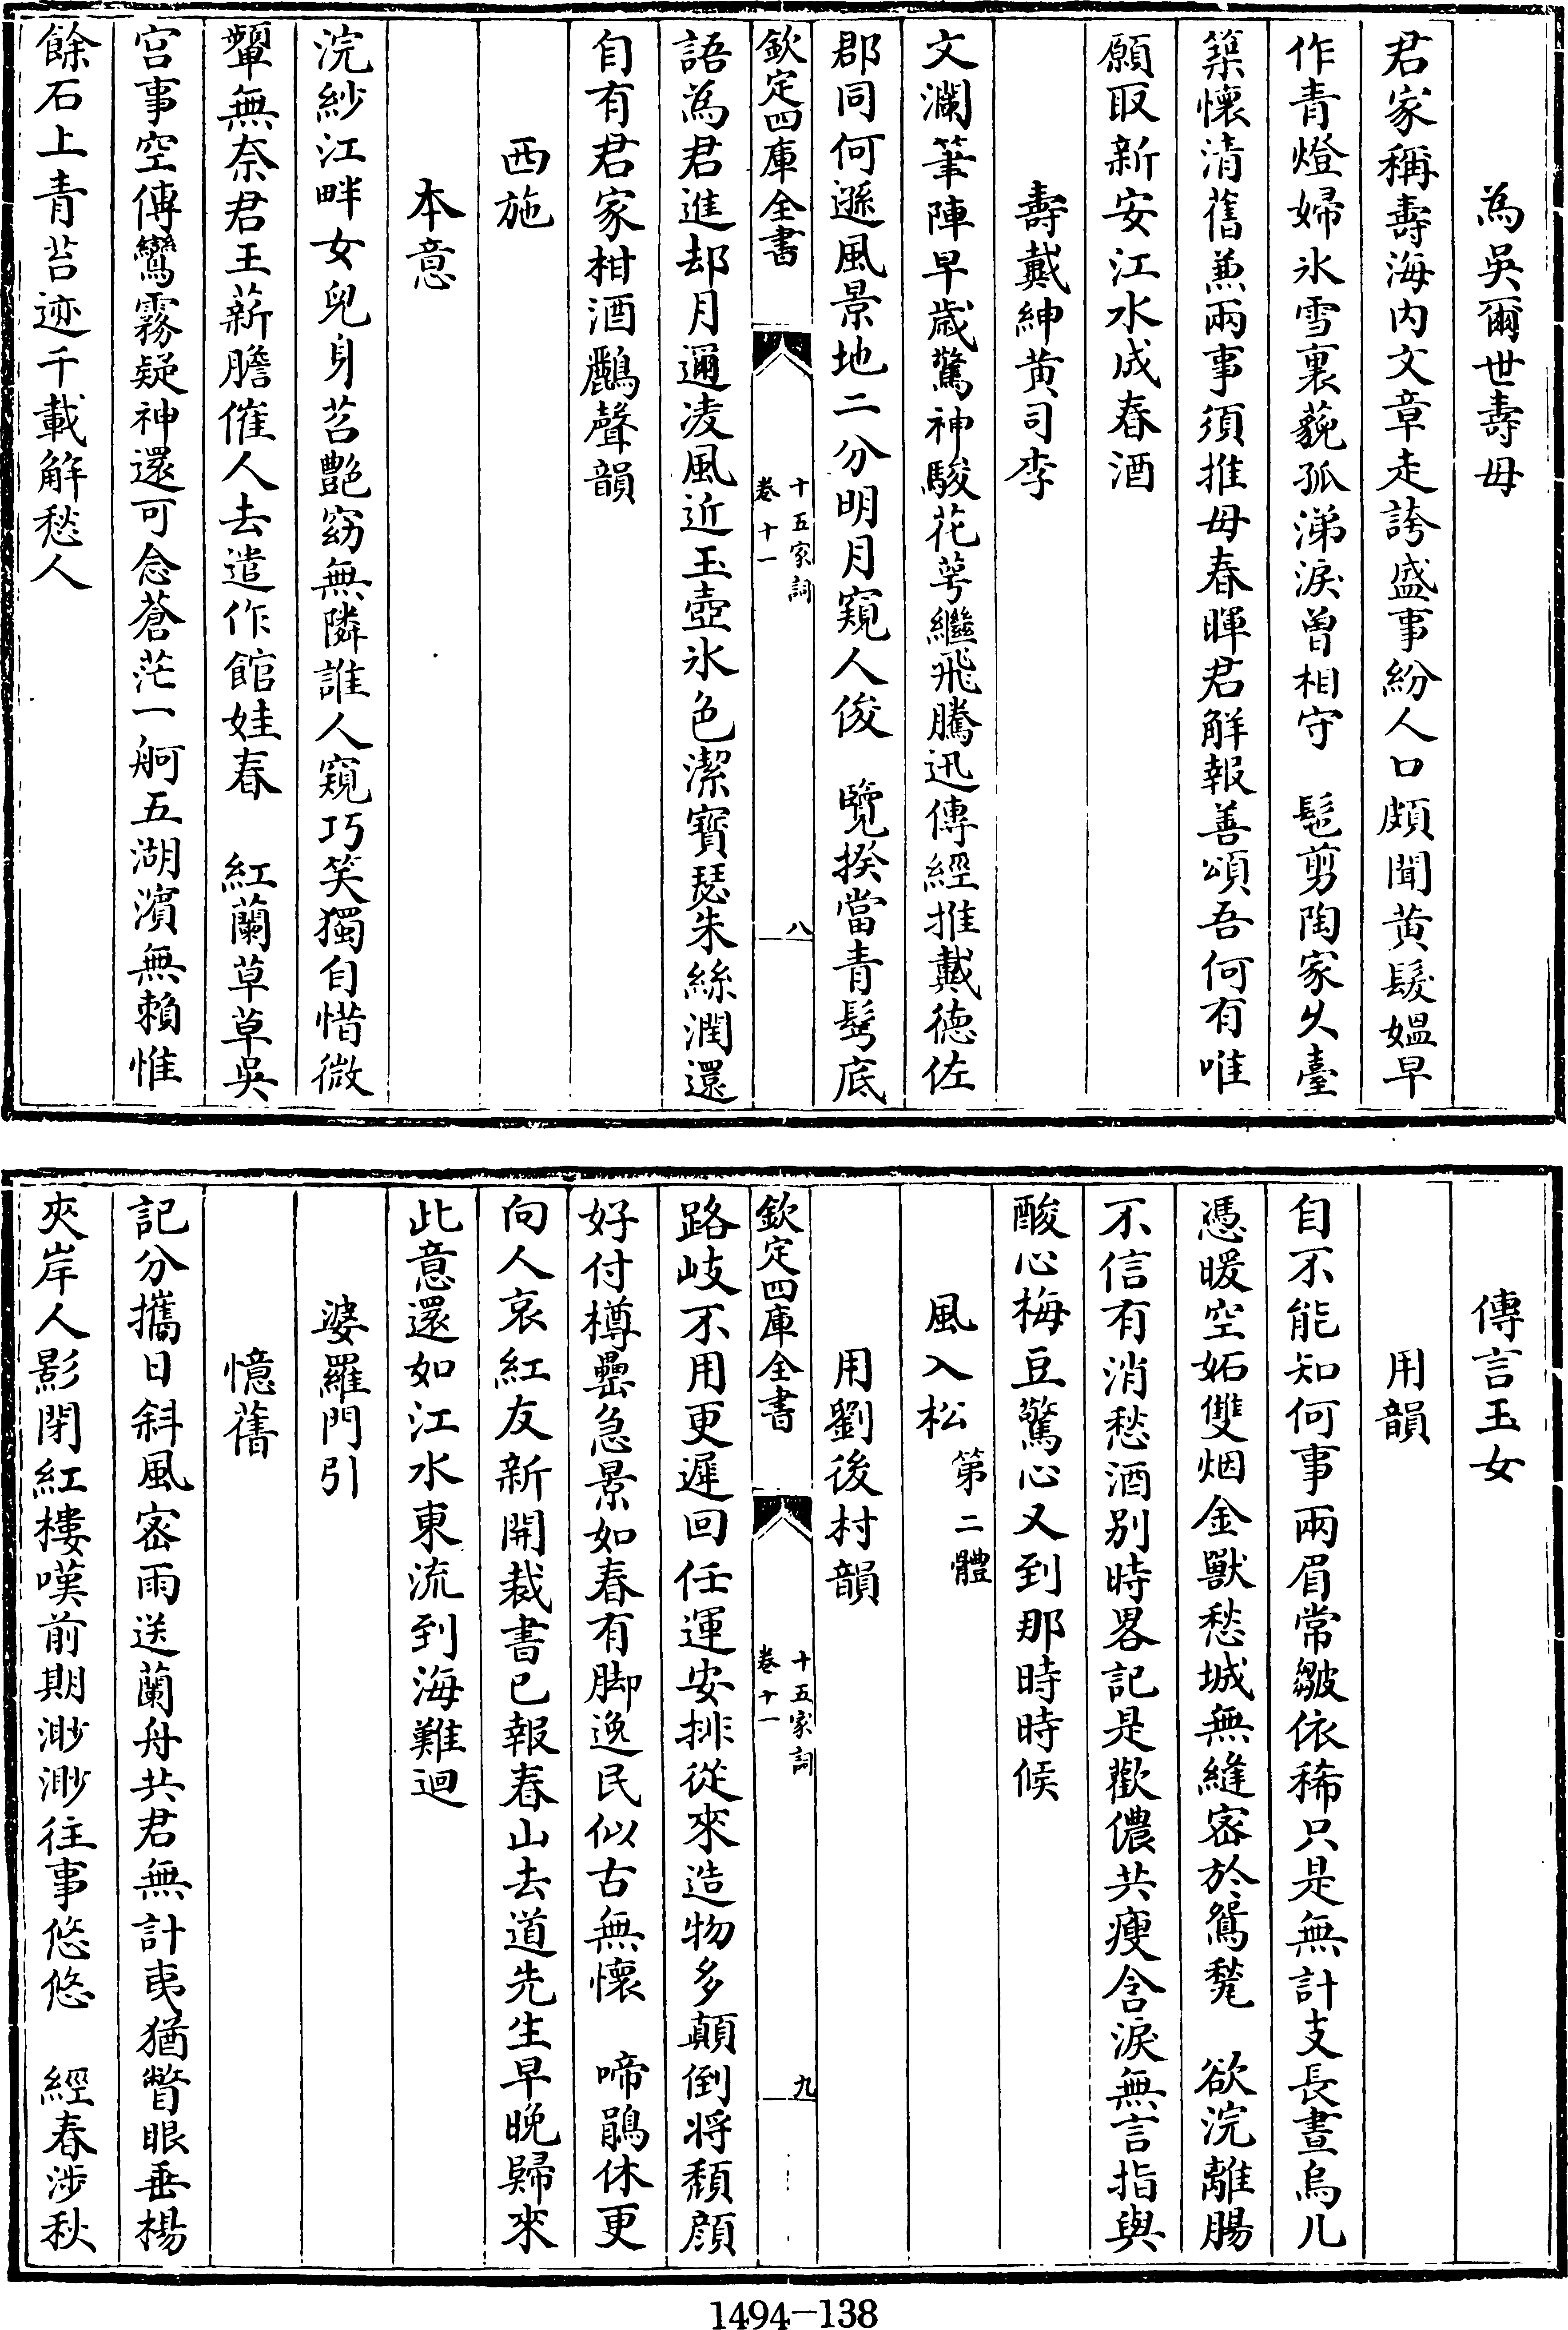 為吳爾世壽母
君家稱壽海内文章走誇盛事紛人口頗聞黄髮媼早
作青燈婦氷雪裏藐孤涕淚曾相守　髢剪陶家乆臺
築懷清舊兼兩事須推母春暉君解報善頌吾何有唯
願取新安江水成春酒
壽戴紳黄司李
文瀾筆陣早歲驚神駿花萼繼飛騰迅傳經推戴德佐
郡同何遜風景地二分明月窺人俊　覽揆當青髩底
欽定四庫全書
十五家詞
卷十一
八
語為君進却月邇凌風近玉壺氷色潔寶瑟朱絲潤還
自有君家柑酒鸝聲韻
西施
本意
浣紗江畔女兒身苕艷窈無隣誰人窺巧笑獨自惜微
顰無奈君王薪膽催人去遣作館娃春　紅蘭草草吳
宫事空傳鸞霧疑神還可念蒼茫一舸五湖濱無賴惟
餘石上青苔迹千載解愁人
傳言玉女
用韻
自不能知何事兩眉常皺依稀只是無計支長晝烏几
憑暖空妬雙烟金獸愁城無縫密於鴛甃　欲浣離腸
不信有消愁酒别時畧記是歡儂共瘦含淚無言指與
酸心梅豆驚心又到那時時候
風入松第二體
用劉後村韻
欽定四庫全書
十五家詞
卷十一
九
路岐不用更遲回任運安排從來造物多顛倒將頹顔
好付樽罍急景如春有脚逸民似古無懷　啼鵑休更
向人哀紅友新開裁書已報春山去道先生早晚歸來
此意還如江水東流到海難迴
婆羅門引
憶舊
記分攜日斜風密雨送蘭舟共君無計夷猶瞥眼垂楊
夾岸人影閉紅樓嘆前期渺渺往事悠悠　經春涉秋
1494-138